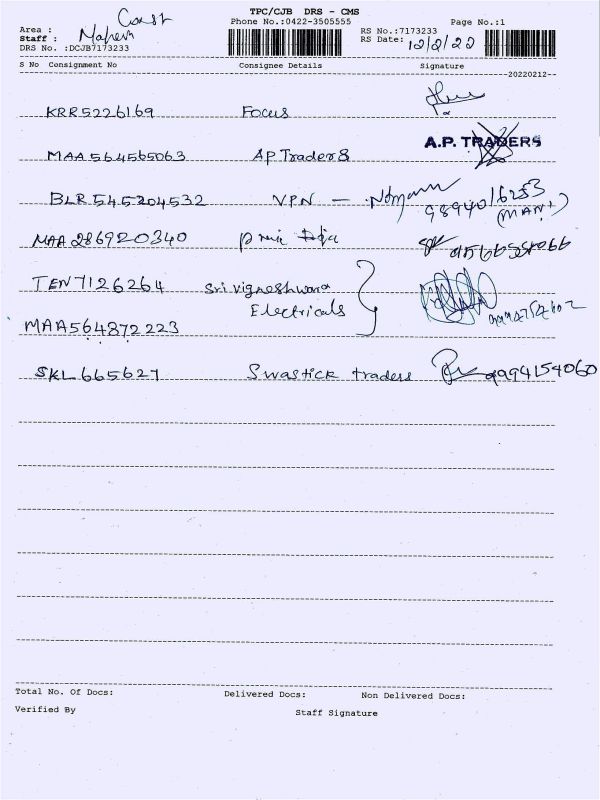 TPC/CJB DRS - CMS
Phone No.:0422-3505555
Page No.:1
Area :
Staff : Mahesh
DRS No. :DCJB7173233
RS No.:7173233
RS Date: 12/2/22
S No Consignment No Consignee Details Signature
--20220212--
KRR5226169 Focus
MAA 564565063 AP Traders A.P. TRADERS
BLR 545204532 VPN — 9894016253
(MANI)
MAA 286920340
TEN 7126264 Sri vigneshwara
Electricals
MAA564872223
SKL 665627 Swastick traders 9994154060
Total No. Of Docs: Delivered Docs: Non Delivered Docs:
Verified By Staff Signature